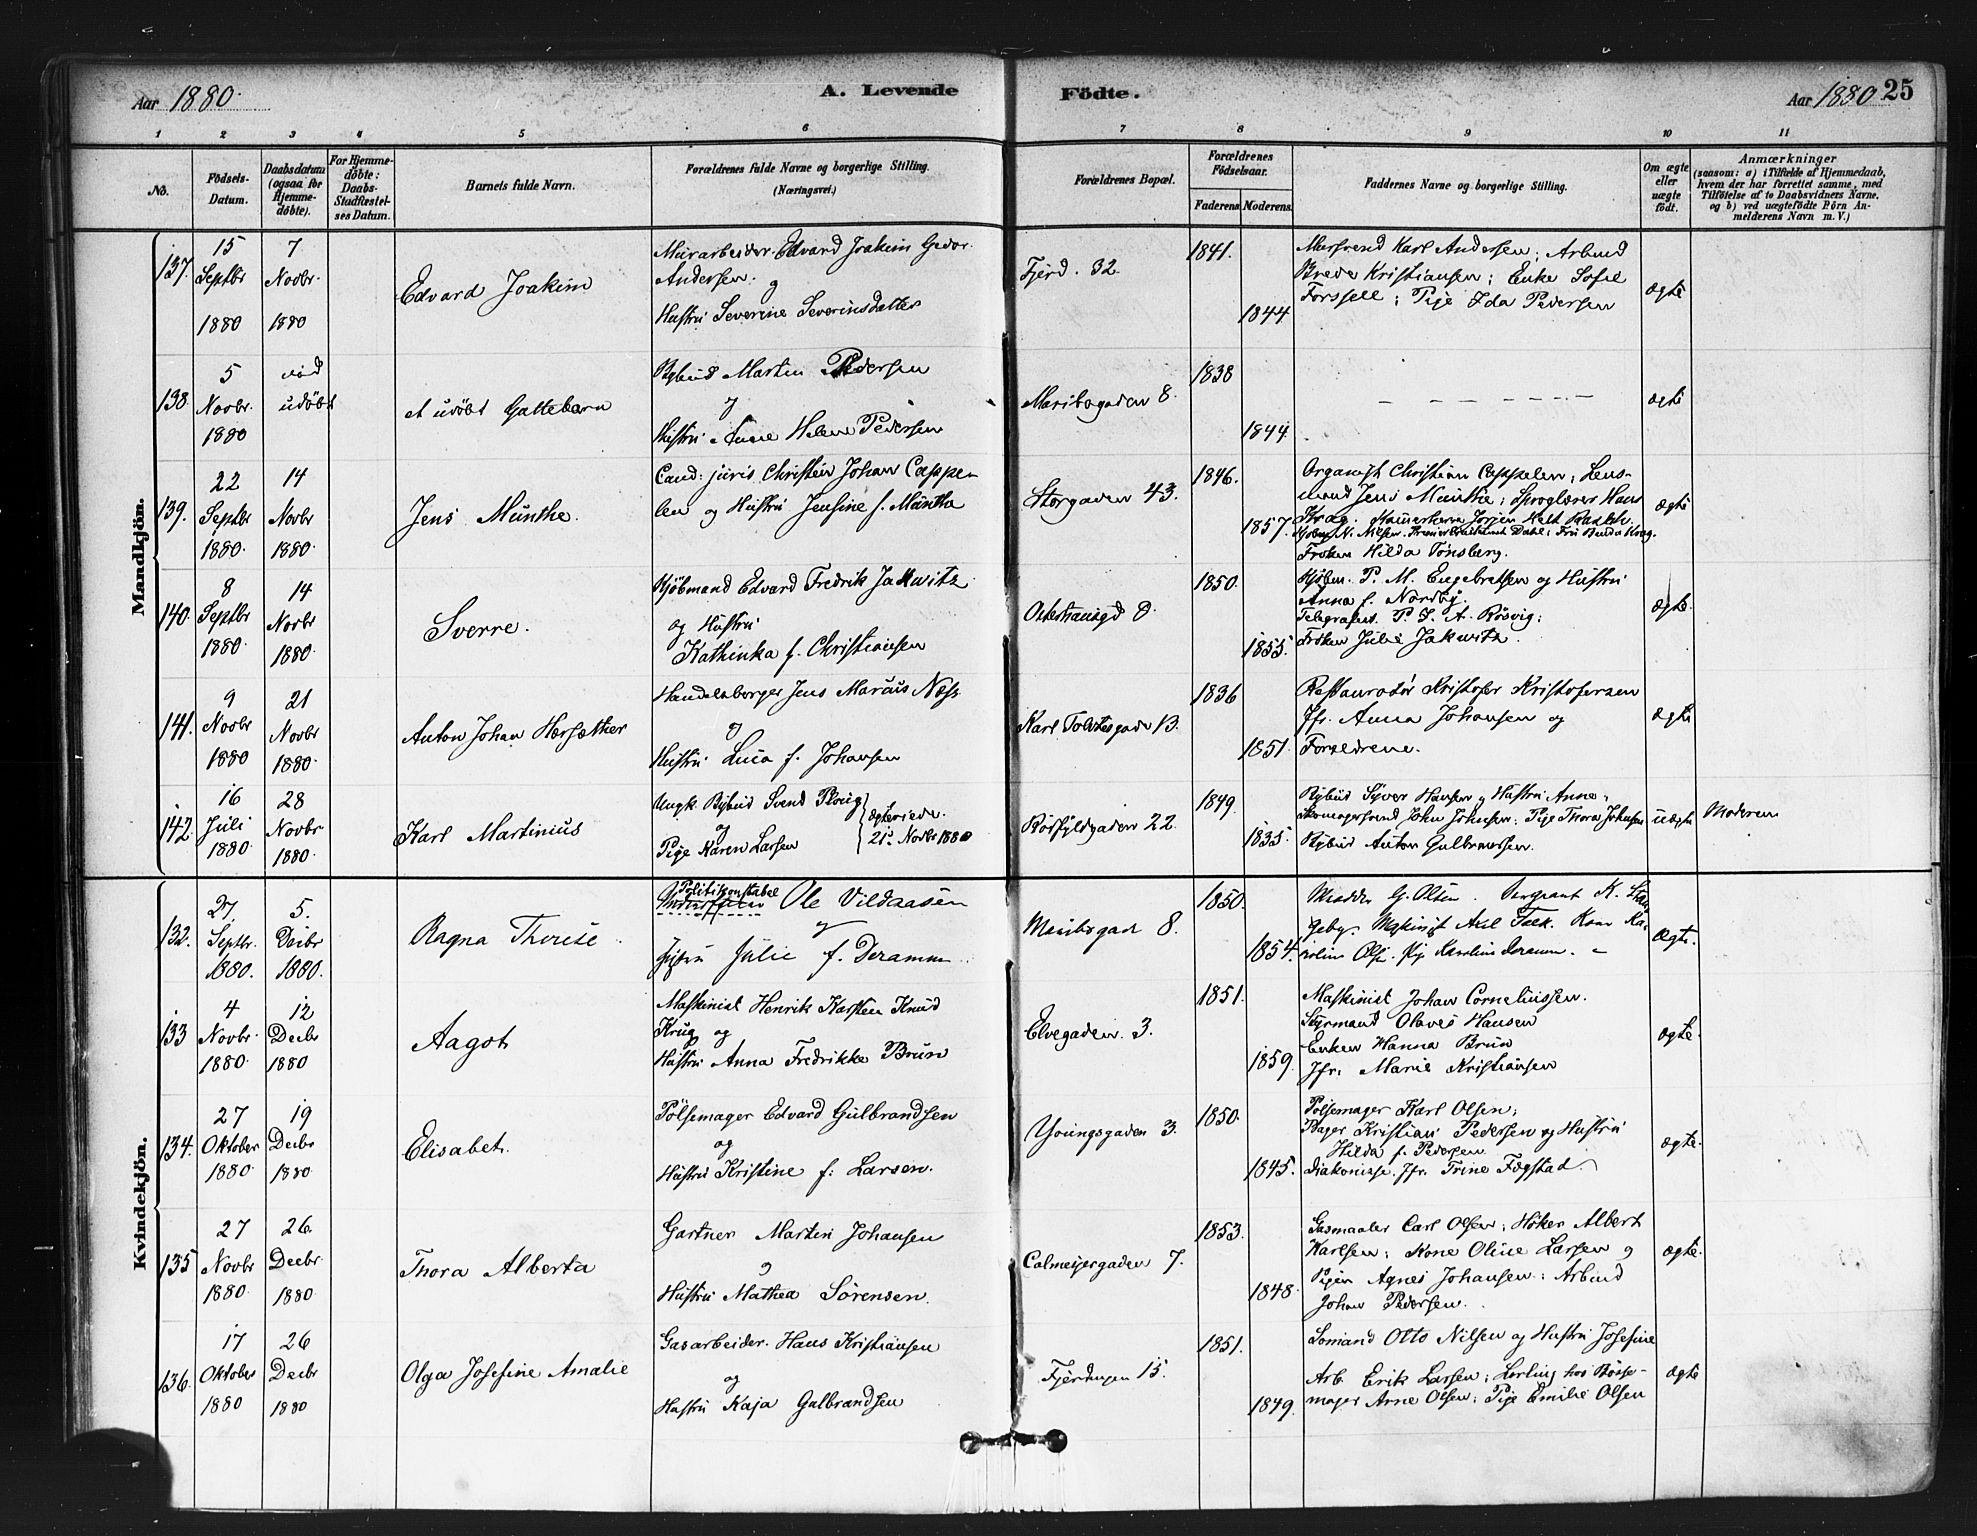 Aar 1880. A. Levende Födte. Aar 1880 25
1 2 3 4 5 6 7 8 9 10 11
No. Födsels-Datum. Daabsdatum (ogsaa for Hjemme-döbte). For Hjemme-döbte: Daabs-Stadfæstel-ses Datum. Barnets fulde Navn. Forældrenes fulde Navne og borgerlige Stilling. (Næringsvei.) Forældrenes Bopæl. Forældrenes Födselsaar. Faderens. Moderens. Faddernes Navne og borgerlige Stilling. Om ægte eller uægte födt. Anmærkninger (saasom: a) i Tilfælde af Hjemmedaab, hvem der har forrettet samme, med Tilföielse af to Daabsvidners Navne, og b) ved uægtefödte Börn An-melderens Navn m. V.)
Mandkjön.
137. 15 Septbr 1880 7 Novbr. 1880 Edvard Joakim
Murarbeider Edvard Joakim
Andersen. og
Hustru Severine Severinsdatter
Fjerd. 32. 1841. 1844
Karl Andersen; Arbmd
Brede Kristiansen; Enke Sofie
Forssell; Pige Ida Pedersen
ægte
138. 5 Novbr. 1880 udöbt et udöbt Guttebarn
Bybud Martin Pedersen
og
Hustru Anne Helene Pedersen
Maribogaden 8. 1838 1844.
ægte
139. 22 Septbr 1880. 14 Novbr 1880. Jens Munthe.
Cand: juris Christen Johan Cappe-
len og Hustru Jensine f. Munthe
Storgaden 43. 1846. 1857.
Organist Christian Cappelen; Lens-
mand Jens Munthe; Sproglærer Hans
Krag.
Kjøbm. N. Nilsen. Premierlieutenant Dahl; Fru Krag.
Frøken Hilda Tönsberg.
ægte
140. 8 Septbr 1880. 14 Novbr 1880. Sverre.
Kjöbmand Edvard Fredrik Jakwitz
og Hustru
Kathinka f. Christiansen
1850. 1855.
Kjöbm. P. M. Engebretsen og Hustru
Anna f. Nordby.
Telegrafist. P. A. Rösvig;
Fröken Julie Jakwitz.
ægte.
141. 9 Novbr 1880 21 Novbr 1880. Anton Johan Horsæther
Handelsborger Jens Marius Næss
og
Hustru Luca f. Johansen
Karl 13. 1836 1851.
Restauratør Kristofer Kristofersen
Jfr. Anna Johansen og
Forældrene.
ægte
142. 16 Juli 1880. 28 Novbr 1880. Karl Martinius
Ungk. Bybud Svend
og
Pige Karen Larsen
21. Novbr 1880
22. 1849. 1835.
Bybud Syver Hansen og Hustru Anne;
John Johnsen; Pige Thora Johnsen
Bybud Anton Gulbransen.
uægte Moderen
Kvindekjön.
132. 27. Septbr. 1880. 5. Decbr 1880. Ragna Therese.
Politikonstabel Ole Vildaasen
og
Hustru Julie f. Deramm
8. 1850. 1854.
G. Olsen. Sergeant K.
Maskinist Axel Falk. Kone
Olsen. Karoline
Ægte.
133 4 Novbr. 1880. 12 Decbr 1880 Aagot
Maskinist Henrik Karsten Knud
Krug og
Hustru Anna Fredrikke Brun
Elvegaden. 3. 1851. 1859.
Maskinist Johan Corneliussen.
Styrmand Olaves Hansen
Enken Hanna Brun
Jfr. Marie Kristiansen
ægte.
134. 27 Oktober 1880 19 Decbr 1880 Elisabet.
Pölsemager Edvard Gulbrandsen
og
Hustru Kristine f. Larsen.
Youngsgaden 3. 1850. 1845.
Pölsemager Karl Olsen;
Bager Kristian Pedersen og Hustru
Hilda f. Pedersen
diakonisse. Jfr. Trine Fogstad.
ægte.
135 27 Novbr 1880. 26. Decbr 1880. Thora Alberta
Gartner Martin Johansen
og
Hustru Mathea Sörensen.
Calmeijergaden 7. 1853. 1848.
Gasmaaler Carl Olsen; Höker Albert
Karlsen; Kone Oline Larsen og
Pigen Agnes Johansen; Arbmd
Johan Pedersen.
ægte.
136. 17 Oktober 1880 26 Decbr 1880 Olga Josefine Amalie
Gasarbeider. Hans Kristiansen
og
Hustru Kaja Gulbrandsen
Fjerdingen 15. 1851. 1849.
Sömand Otto Nilsen og Hustru Josefine
Arb. Erik Larsen; Lærling hos Börste-
mager Arne Olsen; Pige Emilie Olsen
ægte